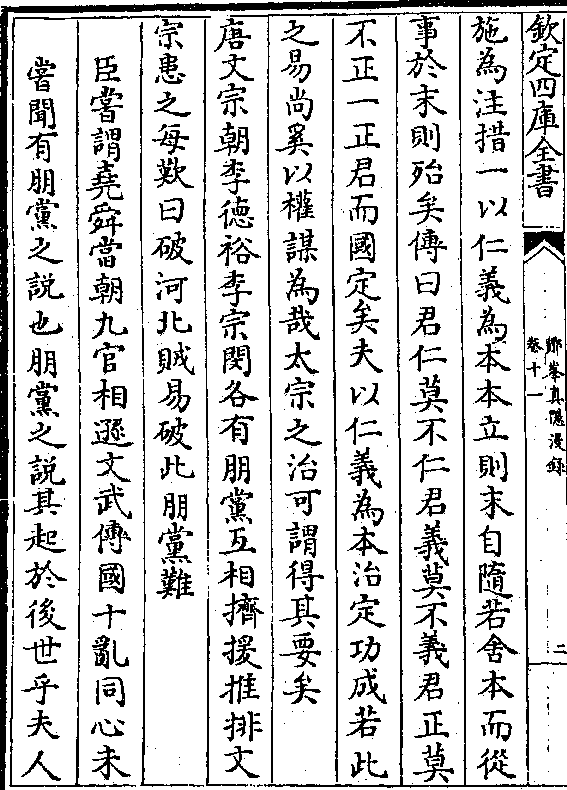 欽定四庫全書
鄮峯真隱漫錄
卷十一
二
施為注措一以仁義為本本立則末自隨若舍本而從
事於末則殆矣傳曰君仁莫不仁君義莫不義君正莫
不正一正君而國定矣夫以仁義為本治定功成若此
之易尚奚以權謀為哉太宗之治可謂得其要矣
唐文宗朝李德裕李宗閔各有朋黨互相擠援推排文
宗患之每歎曰破河北賊易破此朋黨難
臣嘗謂堯舜當朝九官相遜文武傳國十亂同心未
嘗聞有朋黨之說也朋黨之說其起於後世乎夫人